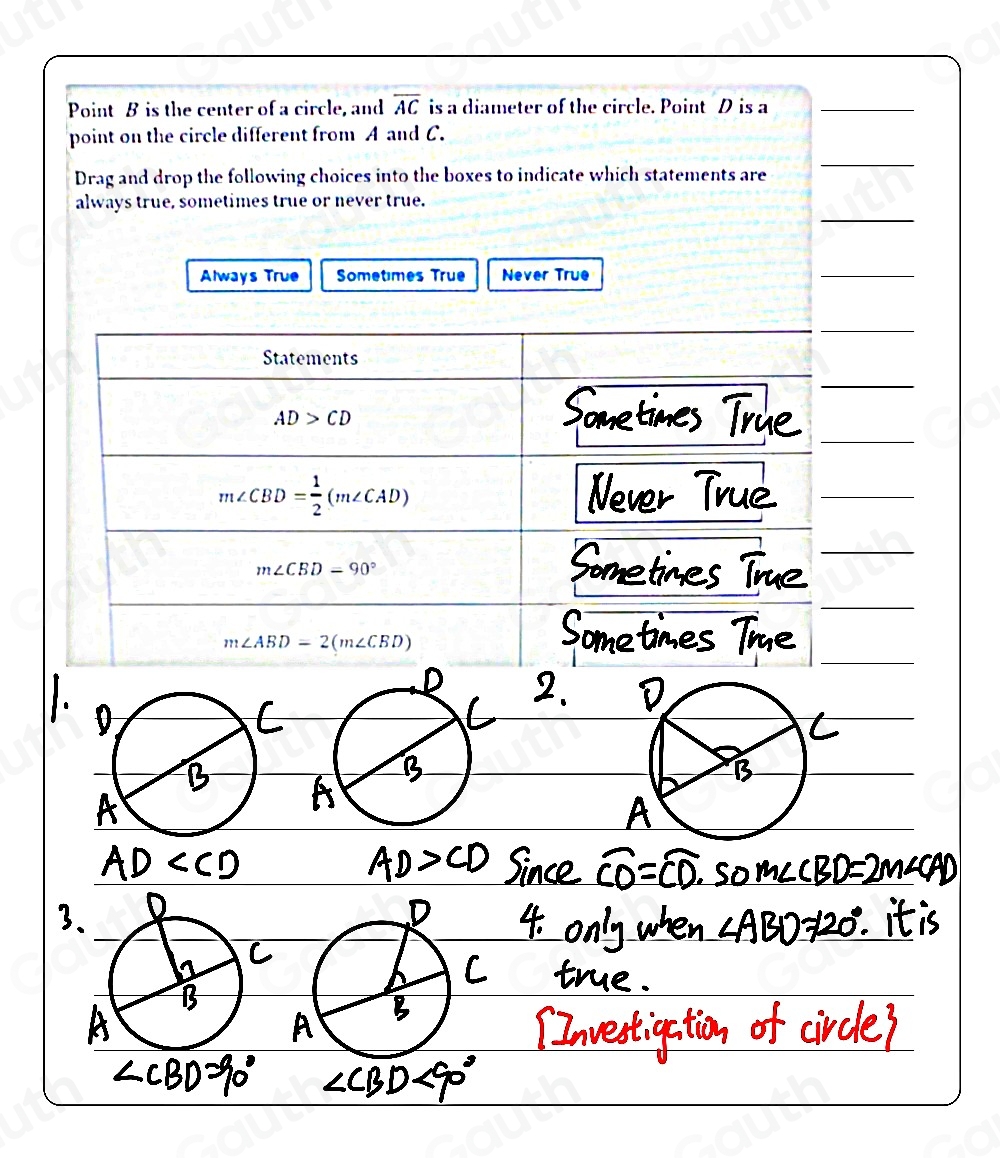 Point B is the center of a circle, and AC is a diameter of the circle. Point D is a
point on the circle different from A and C.
Drag and drop the following choices into the boxes to indicate which statements are
always true, sometimes true or never true.
Always True Sometimes True Never True
Statements
AD > CD Sometimes True
m∠CBD = 1/2 (m∠CAD) Never True
m∠CBD = 90° Sometimes True
m∠ABD = 2(m∠CBD) Sometimes True
1. D C B A
AD < CD
D C B A
AD > CD
2. D C B A
Since CD = CD. so m∠CBD=2m∠CAD
3. D C B A
∠CBD=90°
D C B A
∠CBD<90°
4. only when ∠ABD=120°. it is
true.
{Investigation of circle}